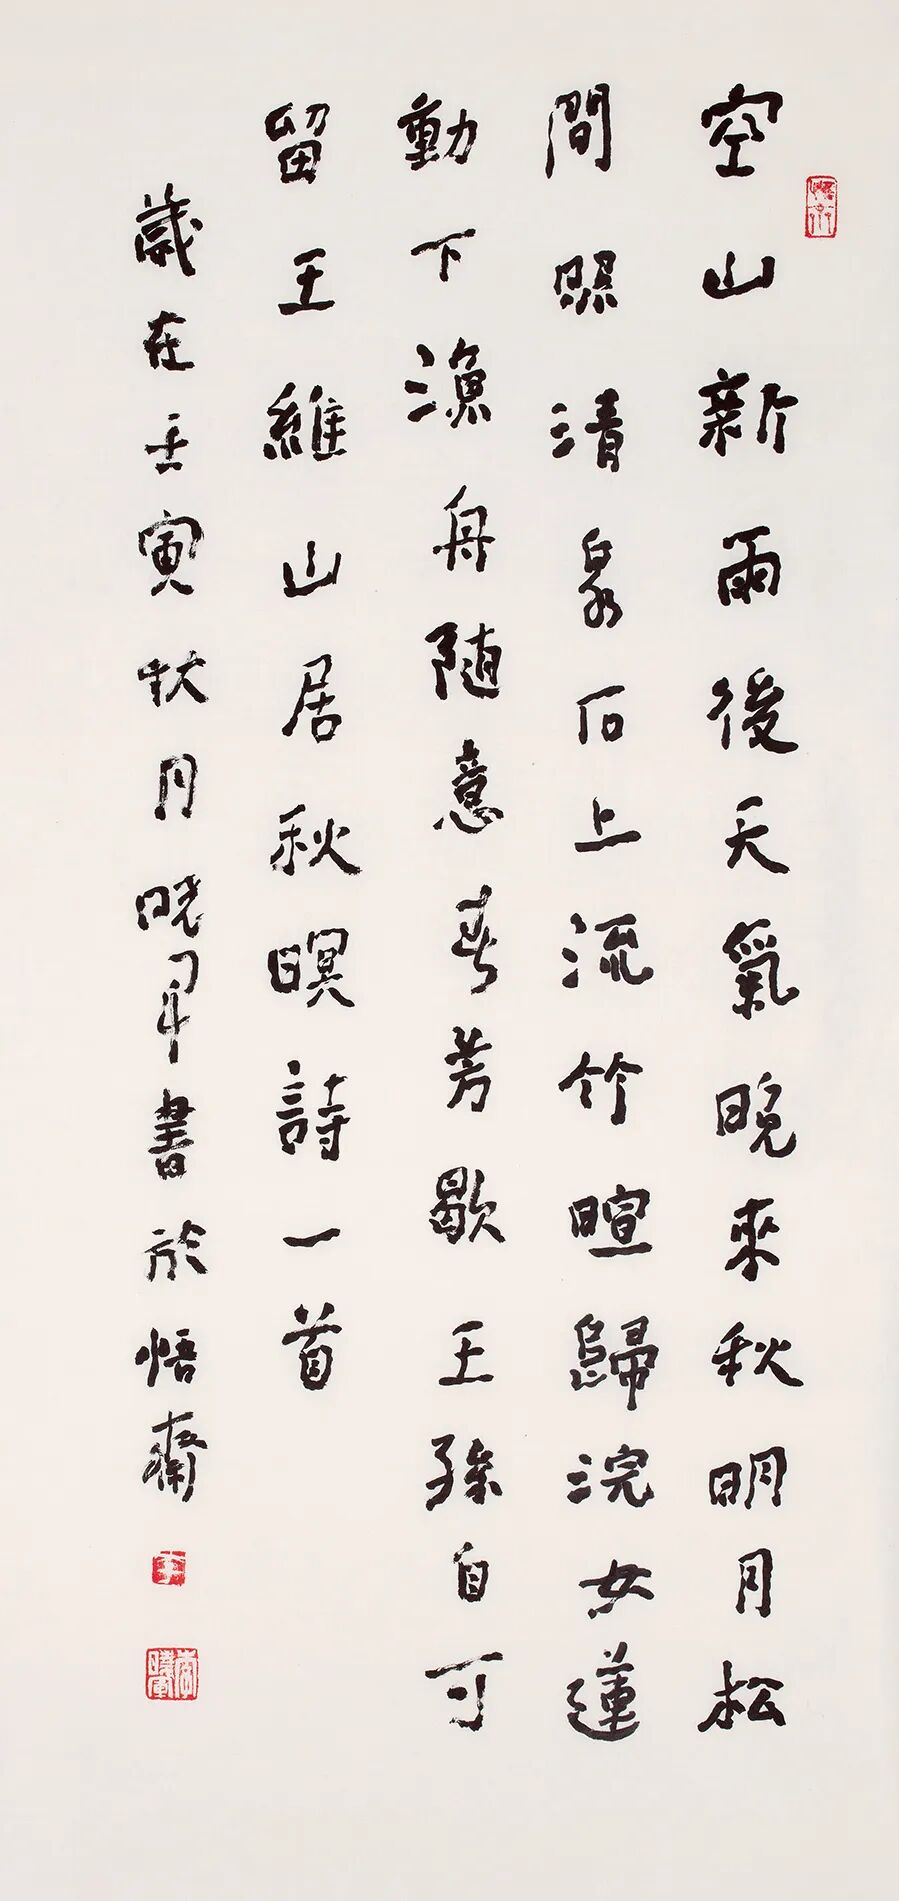 空山新雨後天氣晚來秋明月松
間照清泉石上流竹暄歸浣女蓮
動下漁舟随意春芳歇王孫自可
留王維山居秋暝詩一首
歲在壬寅秋月曉軍書於悟齋
李曉軍